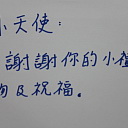 小天使：
謝謝你的小禮
物及祝福．